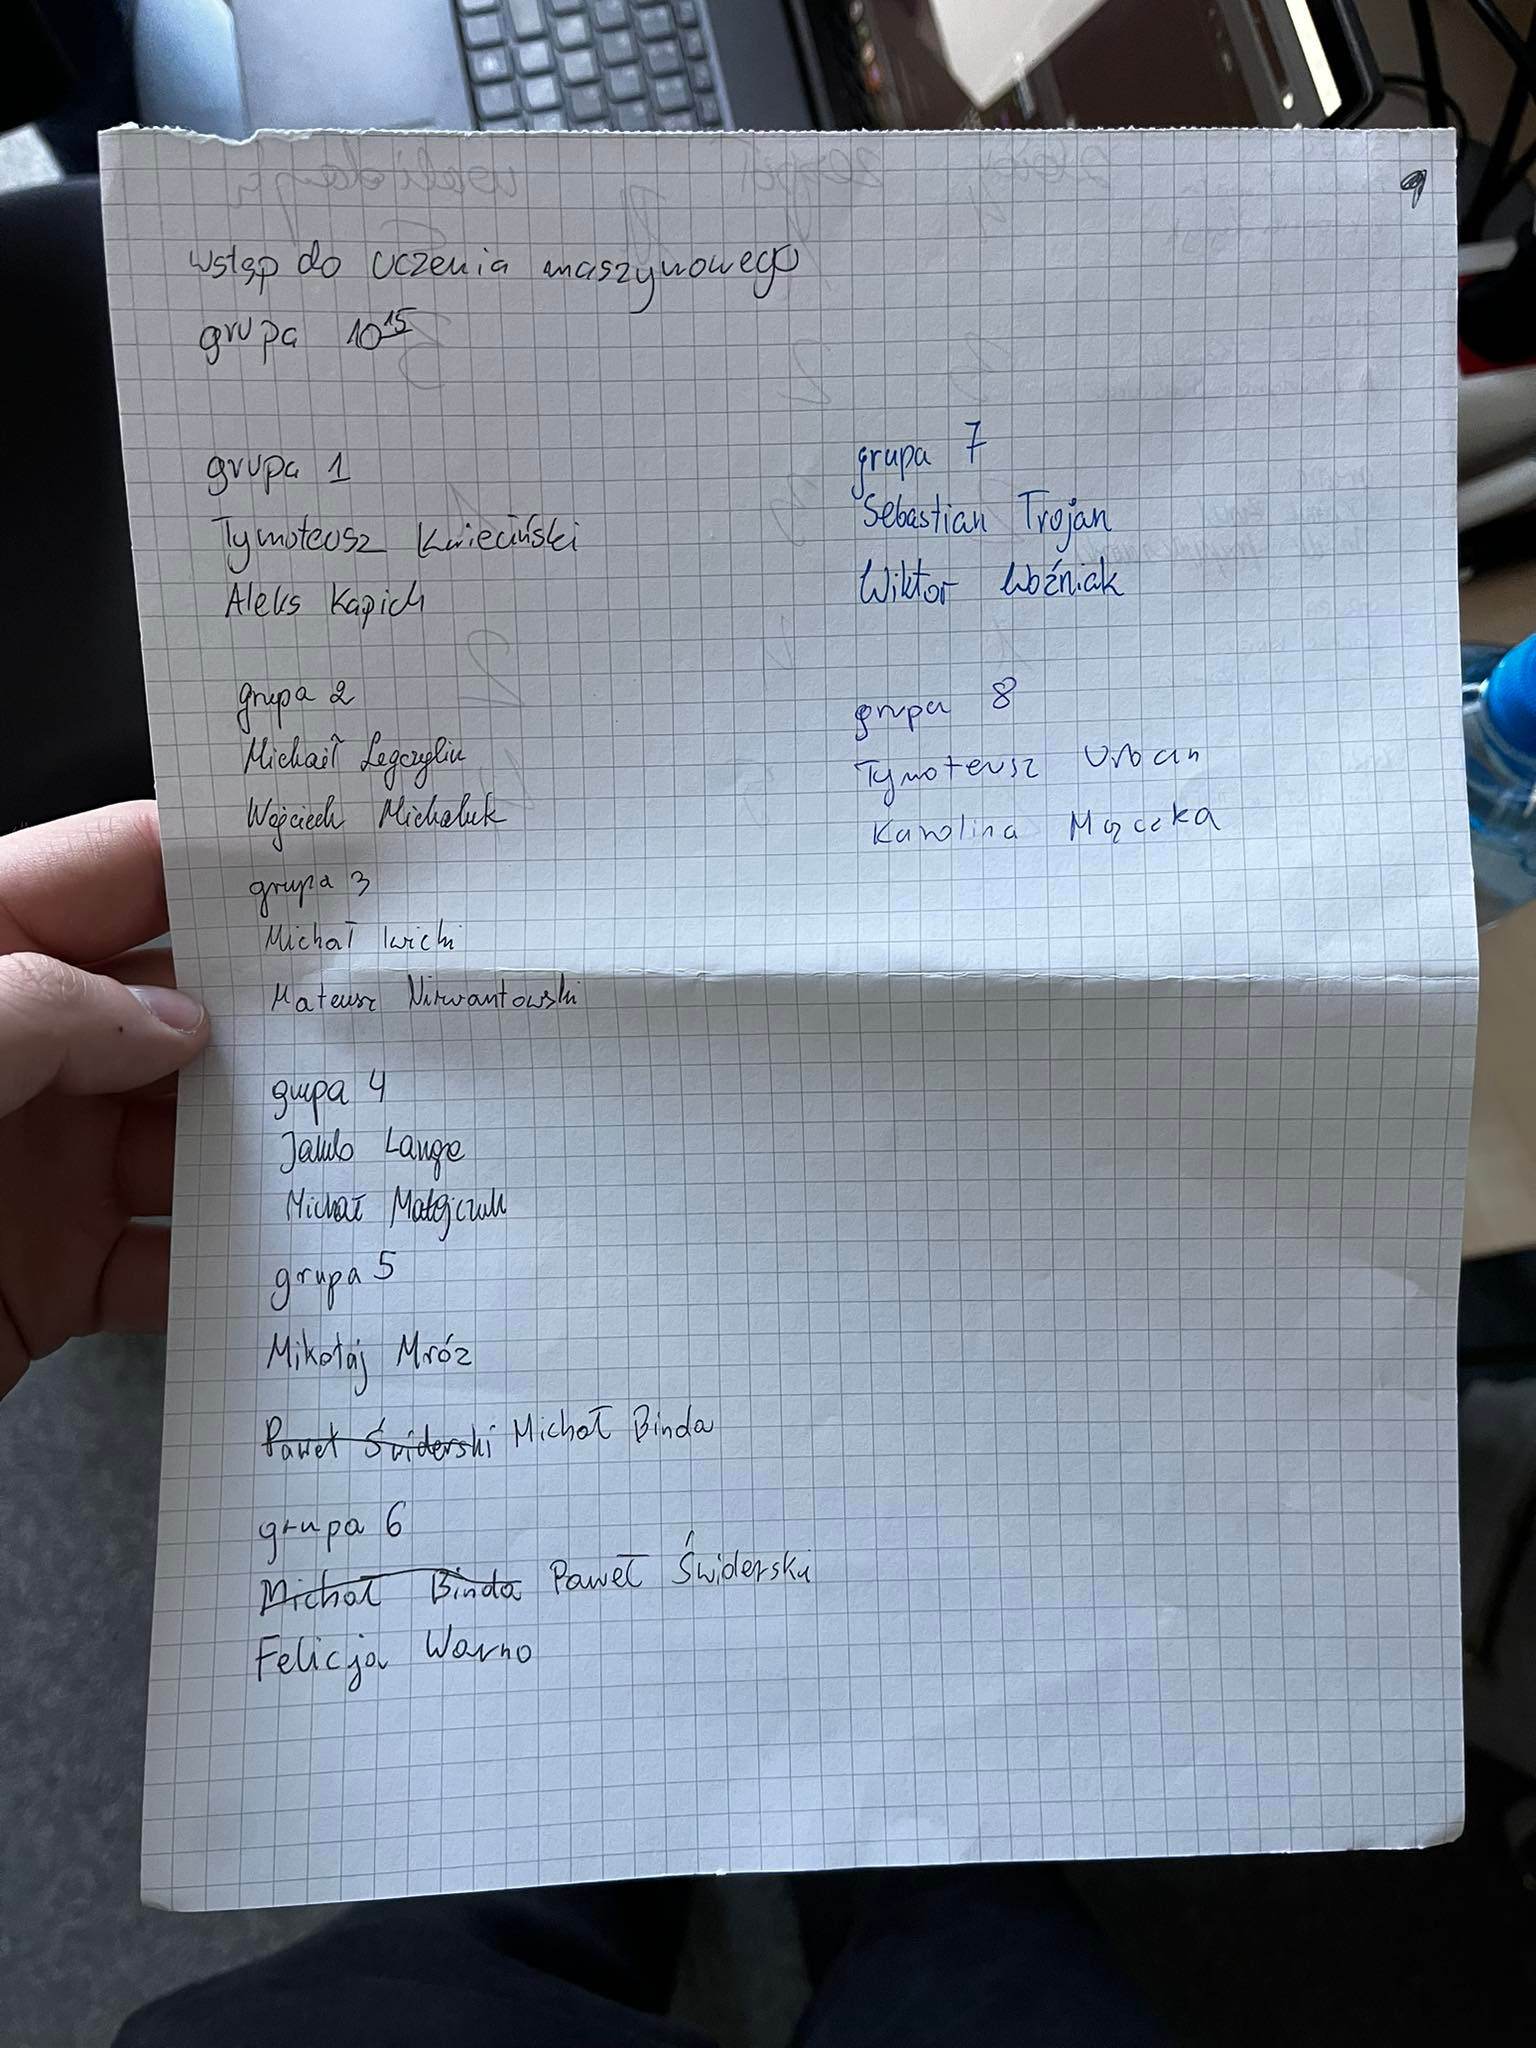 wstęp do uczenia maszynowego
grupa 10^15
grupa 1
Tymoteusz Kwieciński
Aleks Kapich
grupa 2
Michaił
Wojciech Michaluk
grupa 3
Michał Iwicki
Mateusz Nizwantowski
grupa 4
Jakub Lange
Michał Matejczuk
grupa 5
Mikołaj Mróz
Paweł Świderski Michał Binda
grupa 6
Michał Binda Paweł Świderski
Felicja Warno
grupa 7
Sebastian Trojan
Wiktor Woźniak
grupa 8
Tymoteusz Urban
Karolina Mączka